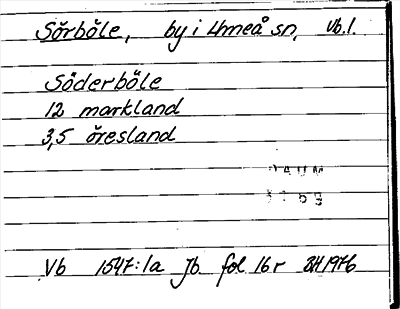 Sörböle, by i Umeå sn, Vb.l.
Söderböle
12 markland
3,5 öresland
DAUM
Vb 1547:1a Jb fol 16r BH 1976